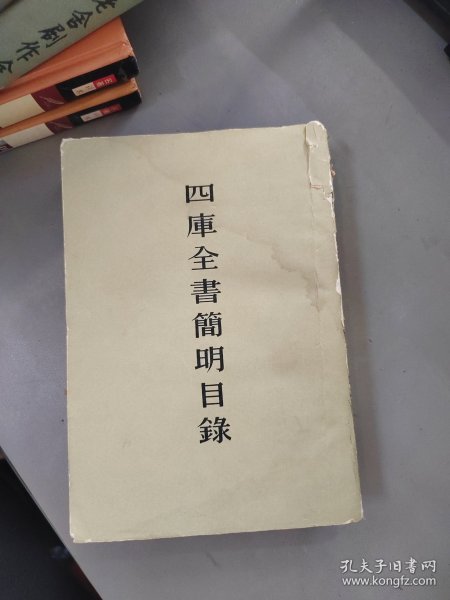 四庫全書簡明目錄
老舍劇作全
孔夫子旧书网
www.kongfz.com